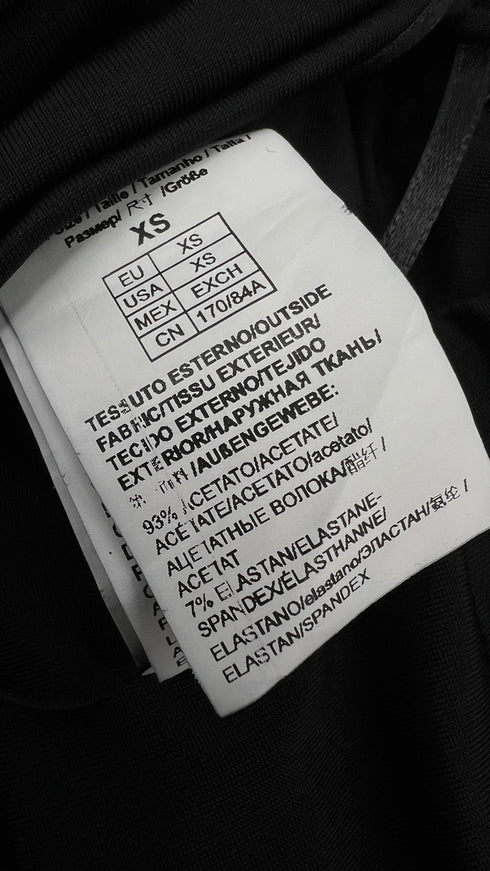 Size / Taille / Tamanho / Talla /
Размер/ 尺寸 /Größe
XS
EU XS
USA XS
MEX EXCH
CN 170/84A
TESSUTO ESTERNO/OUTSIDE
FABRIC/TISSU EXTERIEUR/
TECIDO EXTERNO/TEJIDO
EXTERIOR/НАРУЖНАЯ ТКАНЬ/
/AUßENGEWEBE:
93% ACETATO/ACETATE/
ACÉTATE/ACETATO/acetato/
АЦЕТАТНЫЕ ВОЛОКА/醋纤 /
ACETAT
7% ELASTAN/ELASTANE-
SPANDEX/ÉLASTHANNE/
ELASTANO/elastano/ЭЛАСТАН/氨纶 /
ELASTAN/SPANDEX